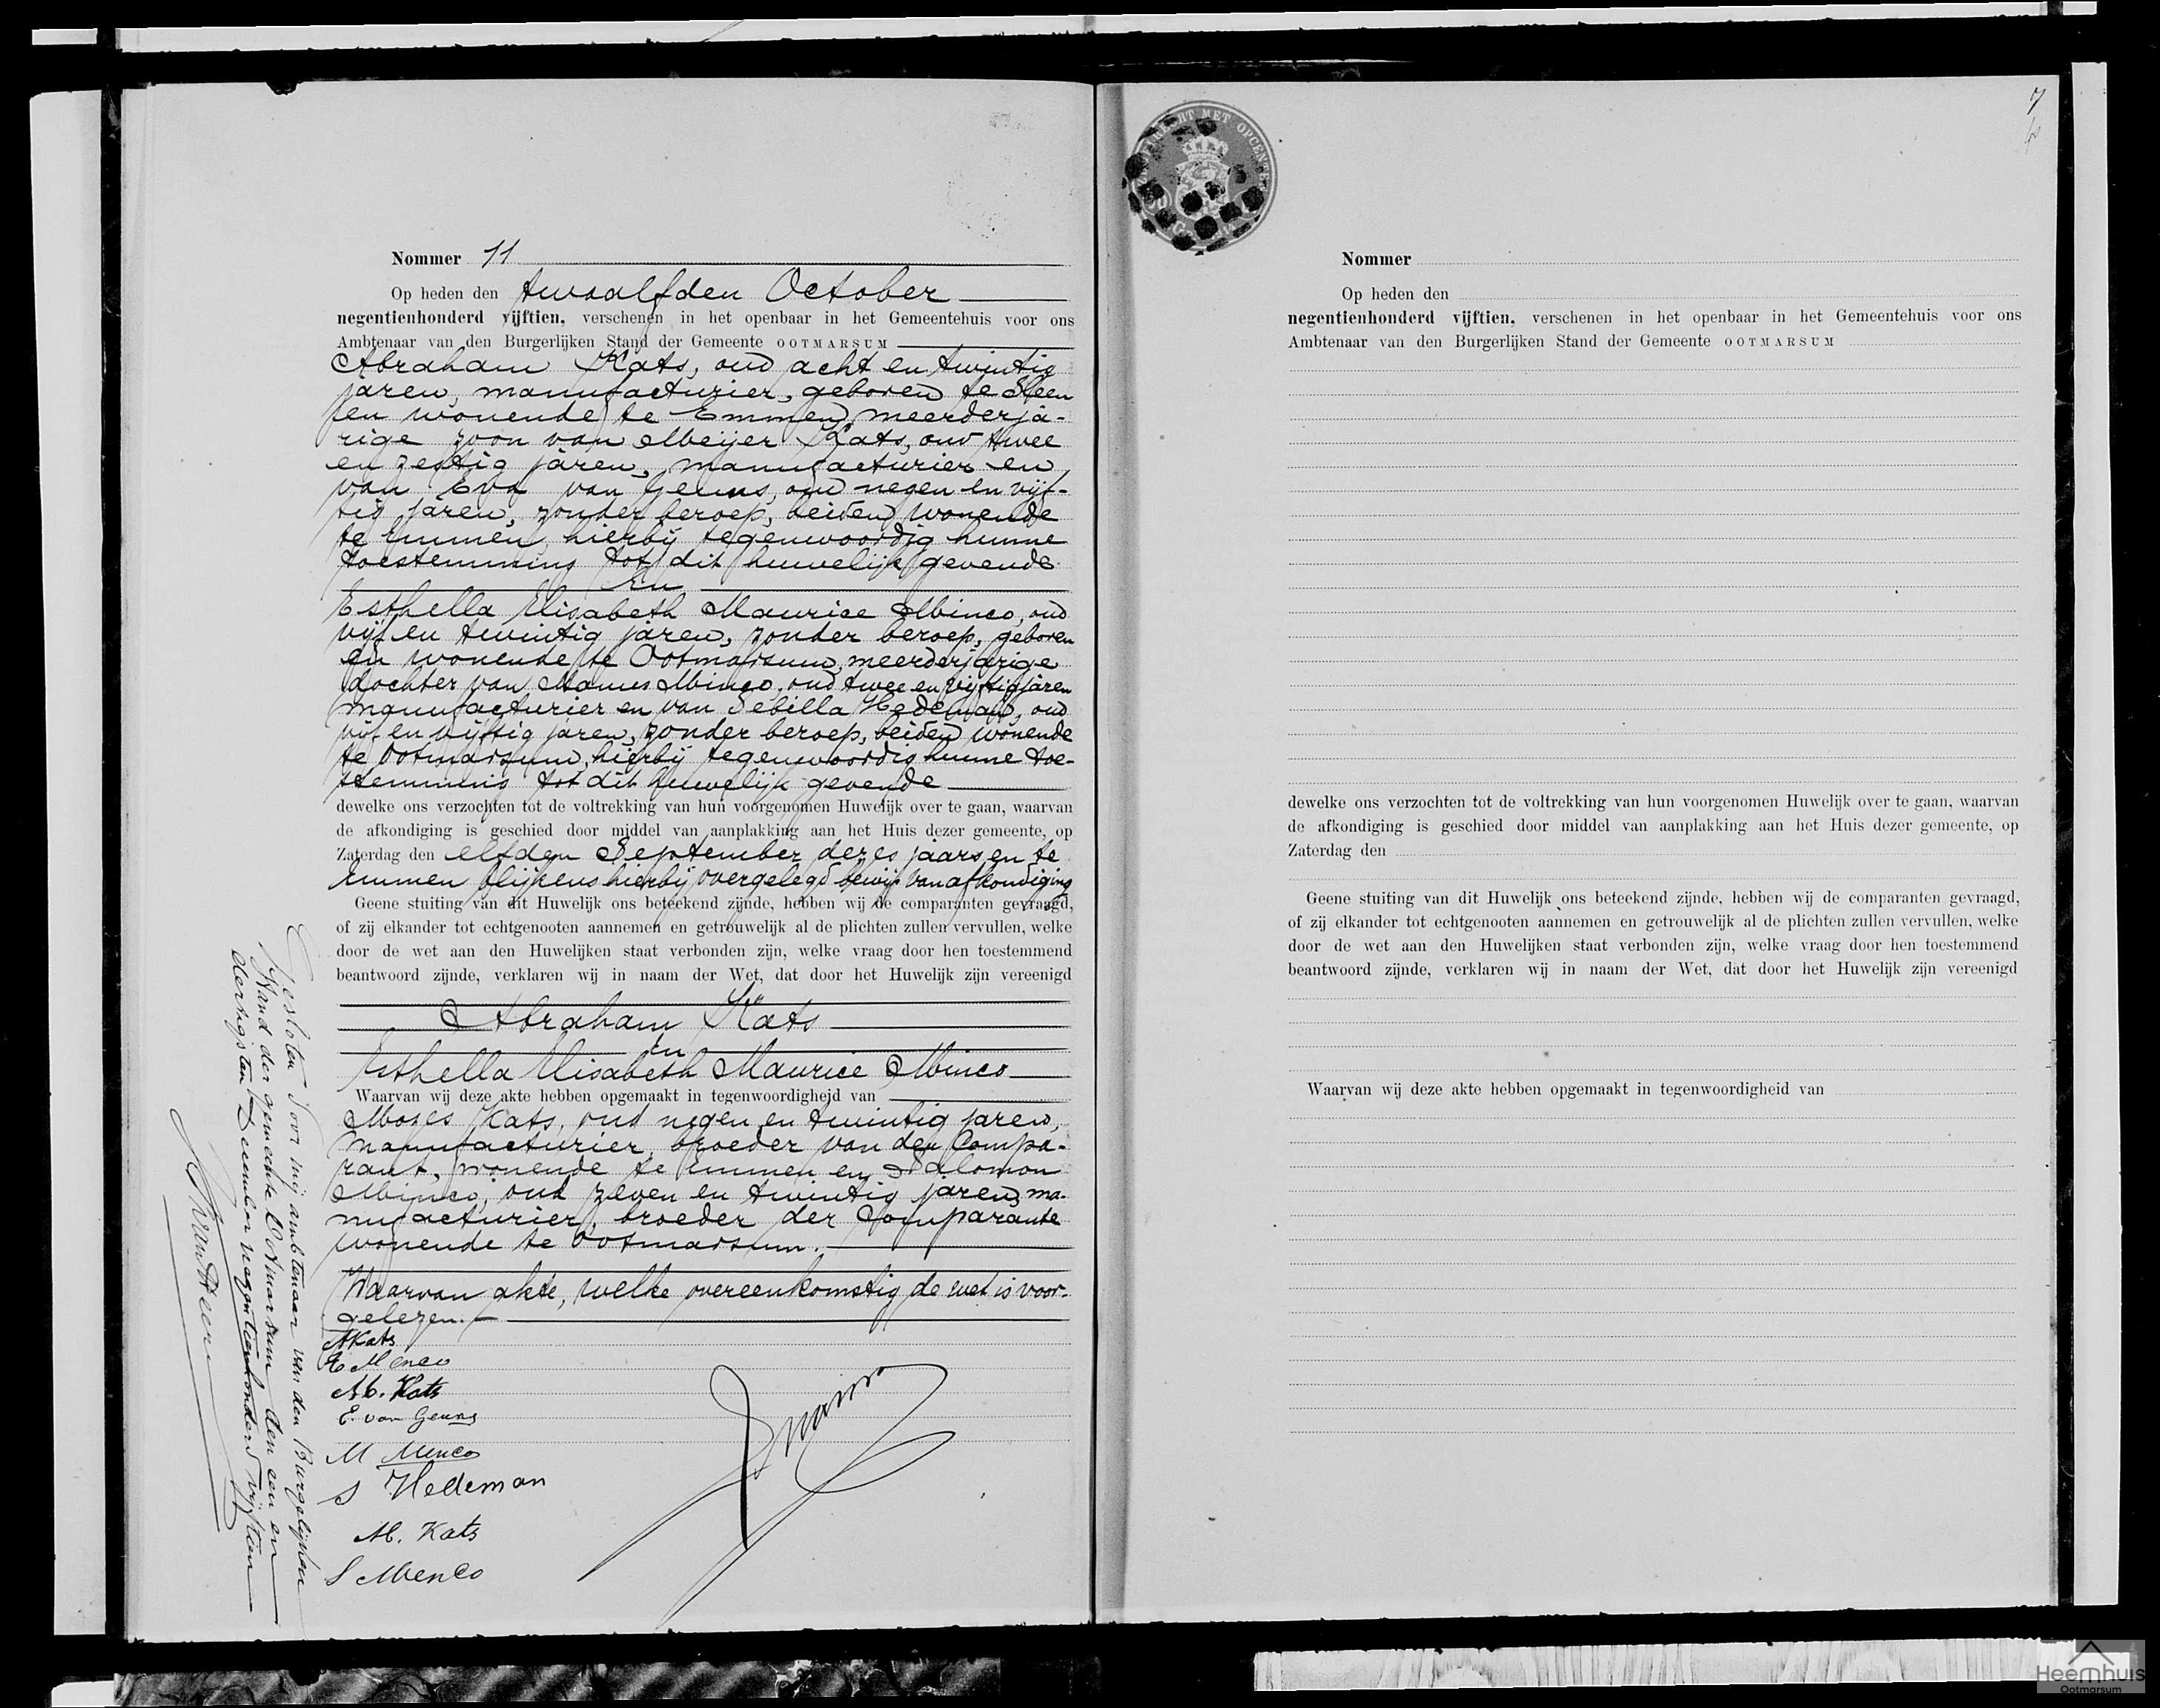 Nommer 11
Op heden den twaalfden October
negentienhonderd vijftien, verschenen in het openbaar in het Gemeentehuis voor ons
Ambtenaar van den Burgerlijken Stand der Gemeente OOTMARSUM
Abraham Kats, oud acht en twintig
jaren, manufacturier, geboren te Sleen
en wonende te Emmen, meerderja-
rige zoon van Meijer Kats, oud twee
en zestig jaren, manufacturier en
van Eva van Geuns, oud negen en vijf-
tig jaren, zonder beroep, beiden wonende
te Emmen, hierbij tegenwoordig hunne
toestemming tot dit huwelijk gevende
En
Esthella Elisabeth Maurice Minco, oud
vijf en twintig jaren, zonder beroep, geboren
en wonende te Ootmarsum, meerderjarige
dochter van Manus Minco, oud twee en vijftig jaren
manufacturier en van Sebilla Hedeman, oud
vijf en vijftig jaren, zonder beroep, beiden wonende
te Ootmarsum, hierbij tegenwoordig hunne toe-
stemming tot dit huwelijk gevende
dewelke ons verzochten tot de voltrekking van hun voorgenomen Huwelijk over te gaan, waarvan
de afkondiging is geschied door middel van aanplakking aan het Huis dezer gemeente, op
Zaterdag den elfden September dezes jaars en te
Emmen blijkens hierbij overgelegd bewijs van afkondiging
Geene stuiting van dit Huwelijk ons beteekend zijnde, hebben wij de comparanten gevraagd,
of zij elkander tot echtgenooten aannemen en getrouwelijk al de plichten zullen vervullen, welke
door de wet aan den Huwelijken staat verbonden zijn, welke vraag door hen toestemmend
beantwoord zijnde, verklaren wij in naam der Wet, dat door het Huwelijk zijn vereenigd
Abraham Kats
en
Esthella Elisabeth Maurice Minco
Waarvan wij deze akte hebben opgemaakt in tegenwoordigheid van
Mozes Kats, oud negen en twintig jaren,
manufacturier, broeder van den Compa-
rant, wonende te Emmen en Salomon
Minco, oud zeven en twintig jaren, ma-
nufacturier, broeder der Comparante
wonende te Ootmarsum.
Waarvan akte, welke overeenkomstig de wet is voor-
gelezen.
AKats
E Menco
M. Kats
E. van Geuns
M Menco
S Hedeman
M. Kats
S Menco
Gesloten door mij ambtenaar van den Burgelijken
Stand der gemeente Ootmarsum den een en
dertigsten December negentienhonderd vijftien
Nommer
Op heden den
negentienhonderd vijftien, verschenen in het openbaar in het Gemeentehuis voor ons
Ambtenaar van den Burgerlijken Stand der Gemeente OOTMARSUM
dewelke ons verzochten tot de voltrekking van hun voorgenomen Huwelijk over te gaan, waarvan
de afkondiging is geschied door middel van aanplakking aan het Huis dezer gemeente, op
Zaterdag den
Geene stuiting van dit Huwelijk ons beteekend zijnde, hebben wij de comparanten gevraagd,
of zij elkander tot echtgenooten aannemen en getrouwelijk al de plichten zullen vervullen, welke
door de wet aan den Huwelijken staat verbonden zijn, welke vraag door hen toestemmend
beantwoord zijnde, verklaren wij in naam der Wet, dat door het Huwelijk zijn vereenigd
Waarvan wij deze akte hebben opgemaakt in tegenwoordigheid van
Heemhuis
Ootmarsum